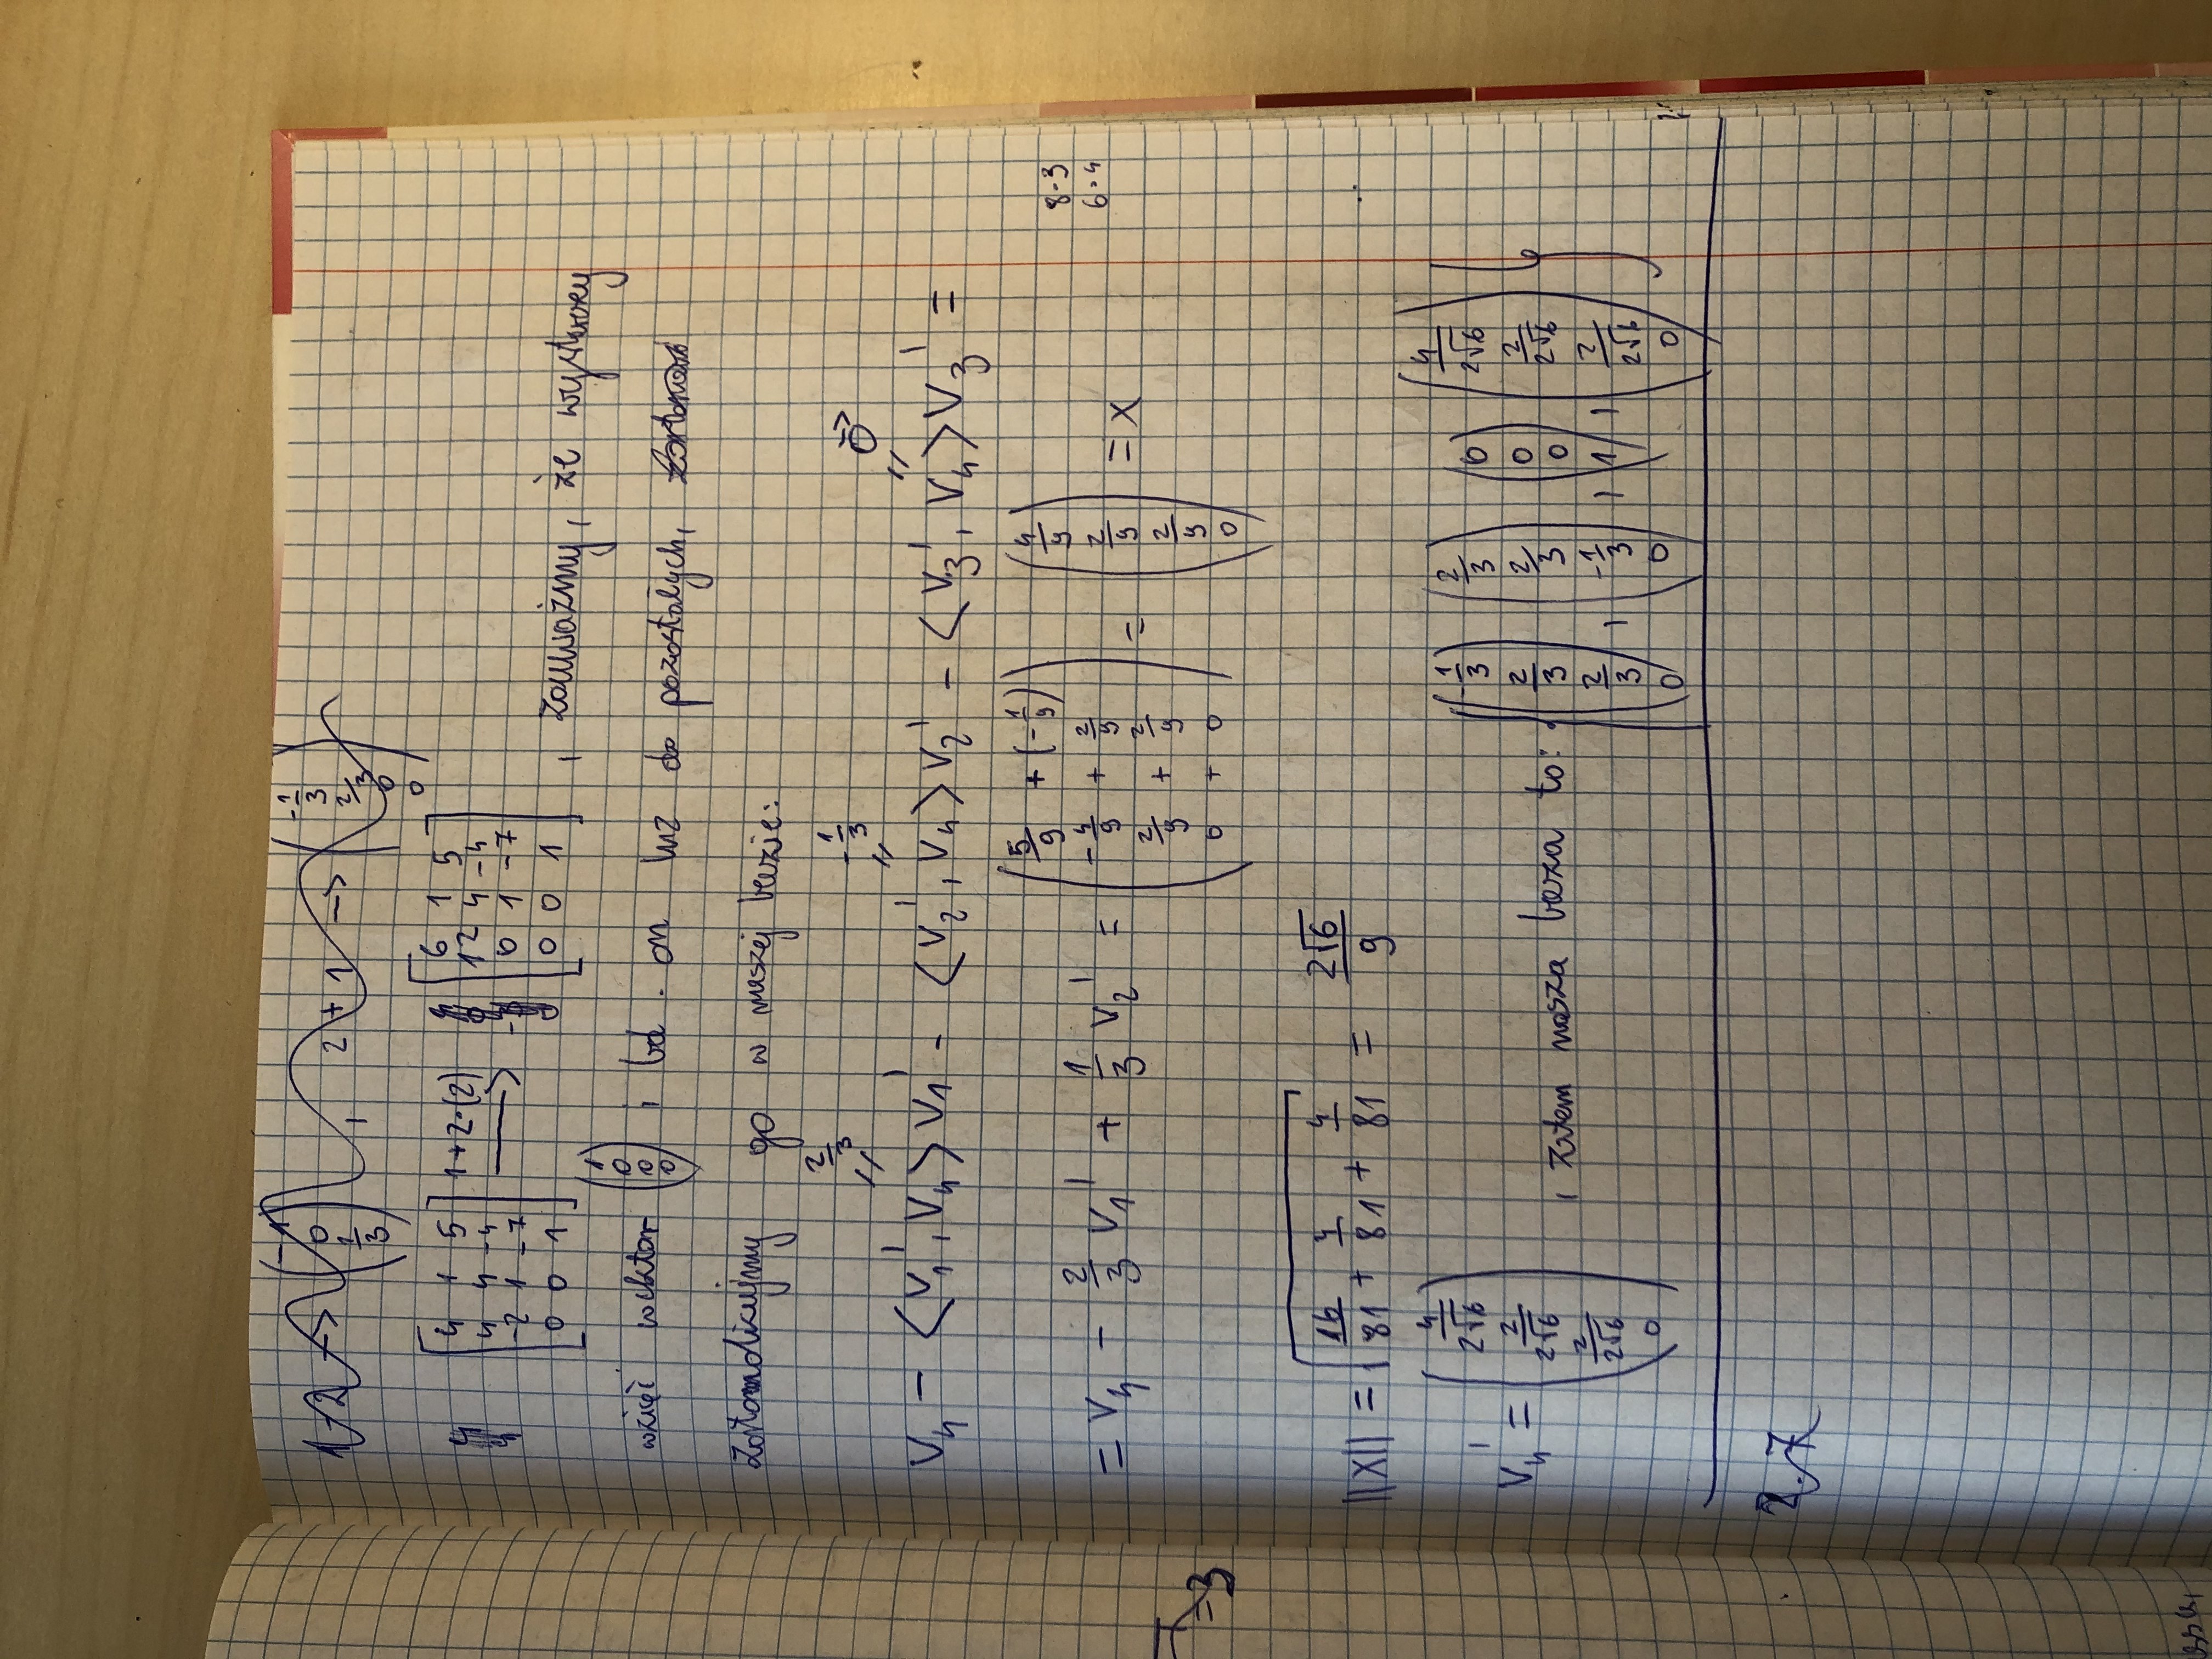 1-2 → (-1, 0, 1/3) , 2+1 → (-1/3, 2/3, 0, 0)
[4 1 5; 4 4 -4; -2 1 -7; 0 0 1] 1+2·(2) → [6 1 5; 12 4 -4; 0 1 -7; 0 0 1] , zauważmy, że wystarczy
wziąć wektor (1, 0, 0, 0) , bd. on lnz do pozostałych,
zortonormalizujmy go w naszej bazie:
2/3 -1/3 0⃗
" " "
V₄ - <V₁', V₄>V₁' - <V₂', V₄>V₂' - <V₃', V₄>V₃' =
= V₄ - 2/3 V₁' + 1/3 V₂' = (5/9 + (-1/9), -4/9 + 2/9, 2/9 + 2/9, 0 + 0) = (4/9, 2/9, 2/9, 0) = x
8-3
6·4
=3
||x|| = √(16/81 + 4/81 + 4/81) = 2√6/9
V₄' = (4/2√6, 2/2√6, 2/2√6, 0) , zatem nasza baza to: {(-1/3, 2/3, 2/3, 0), (2/3, 2/3, -1/3, 0), (0, 0, 0, 1), (4/2√6, 2/2√6, 2/2√6, 0)}
2.7